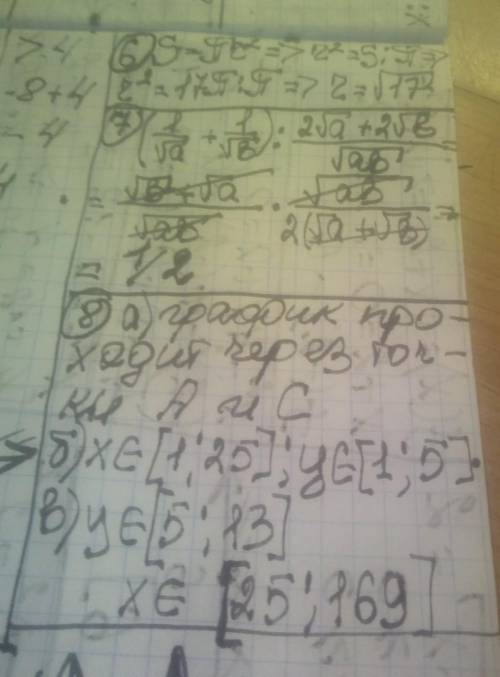 > 4
-8+4
= 4
6) S=πr²=> r²=S:π=>
r²=17π:π => r=√17
7) (1/√a + 1/√b) : (2√a+2√b)/√ab =
= (√b+√a)/√ab · √ab/2(√a+√b) =
= 1/2
8) а) график про-
ходит через точ-
ки А и С
б) x∈[1;25]; y∈[1;5].
в) y∈[5;13]
x∈ [25;169]